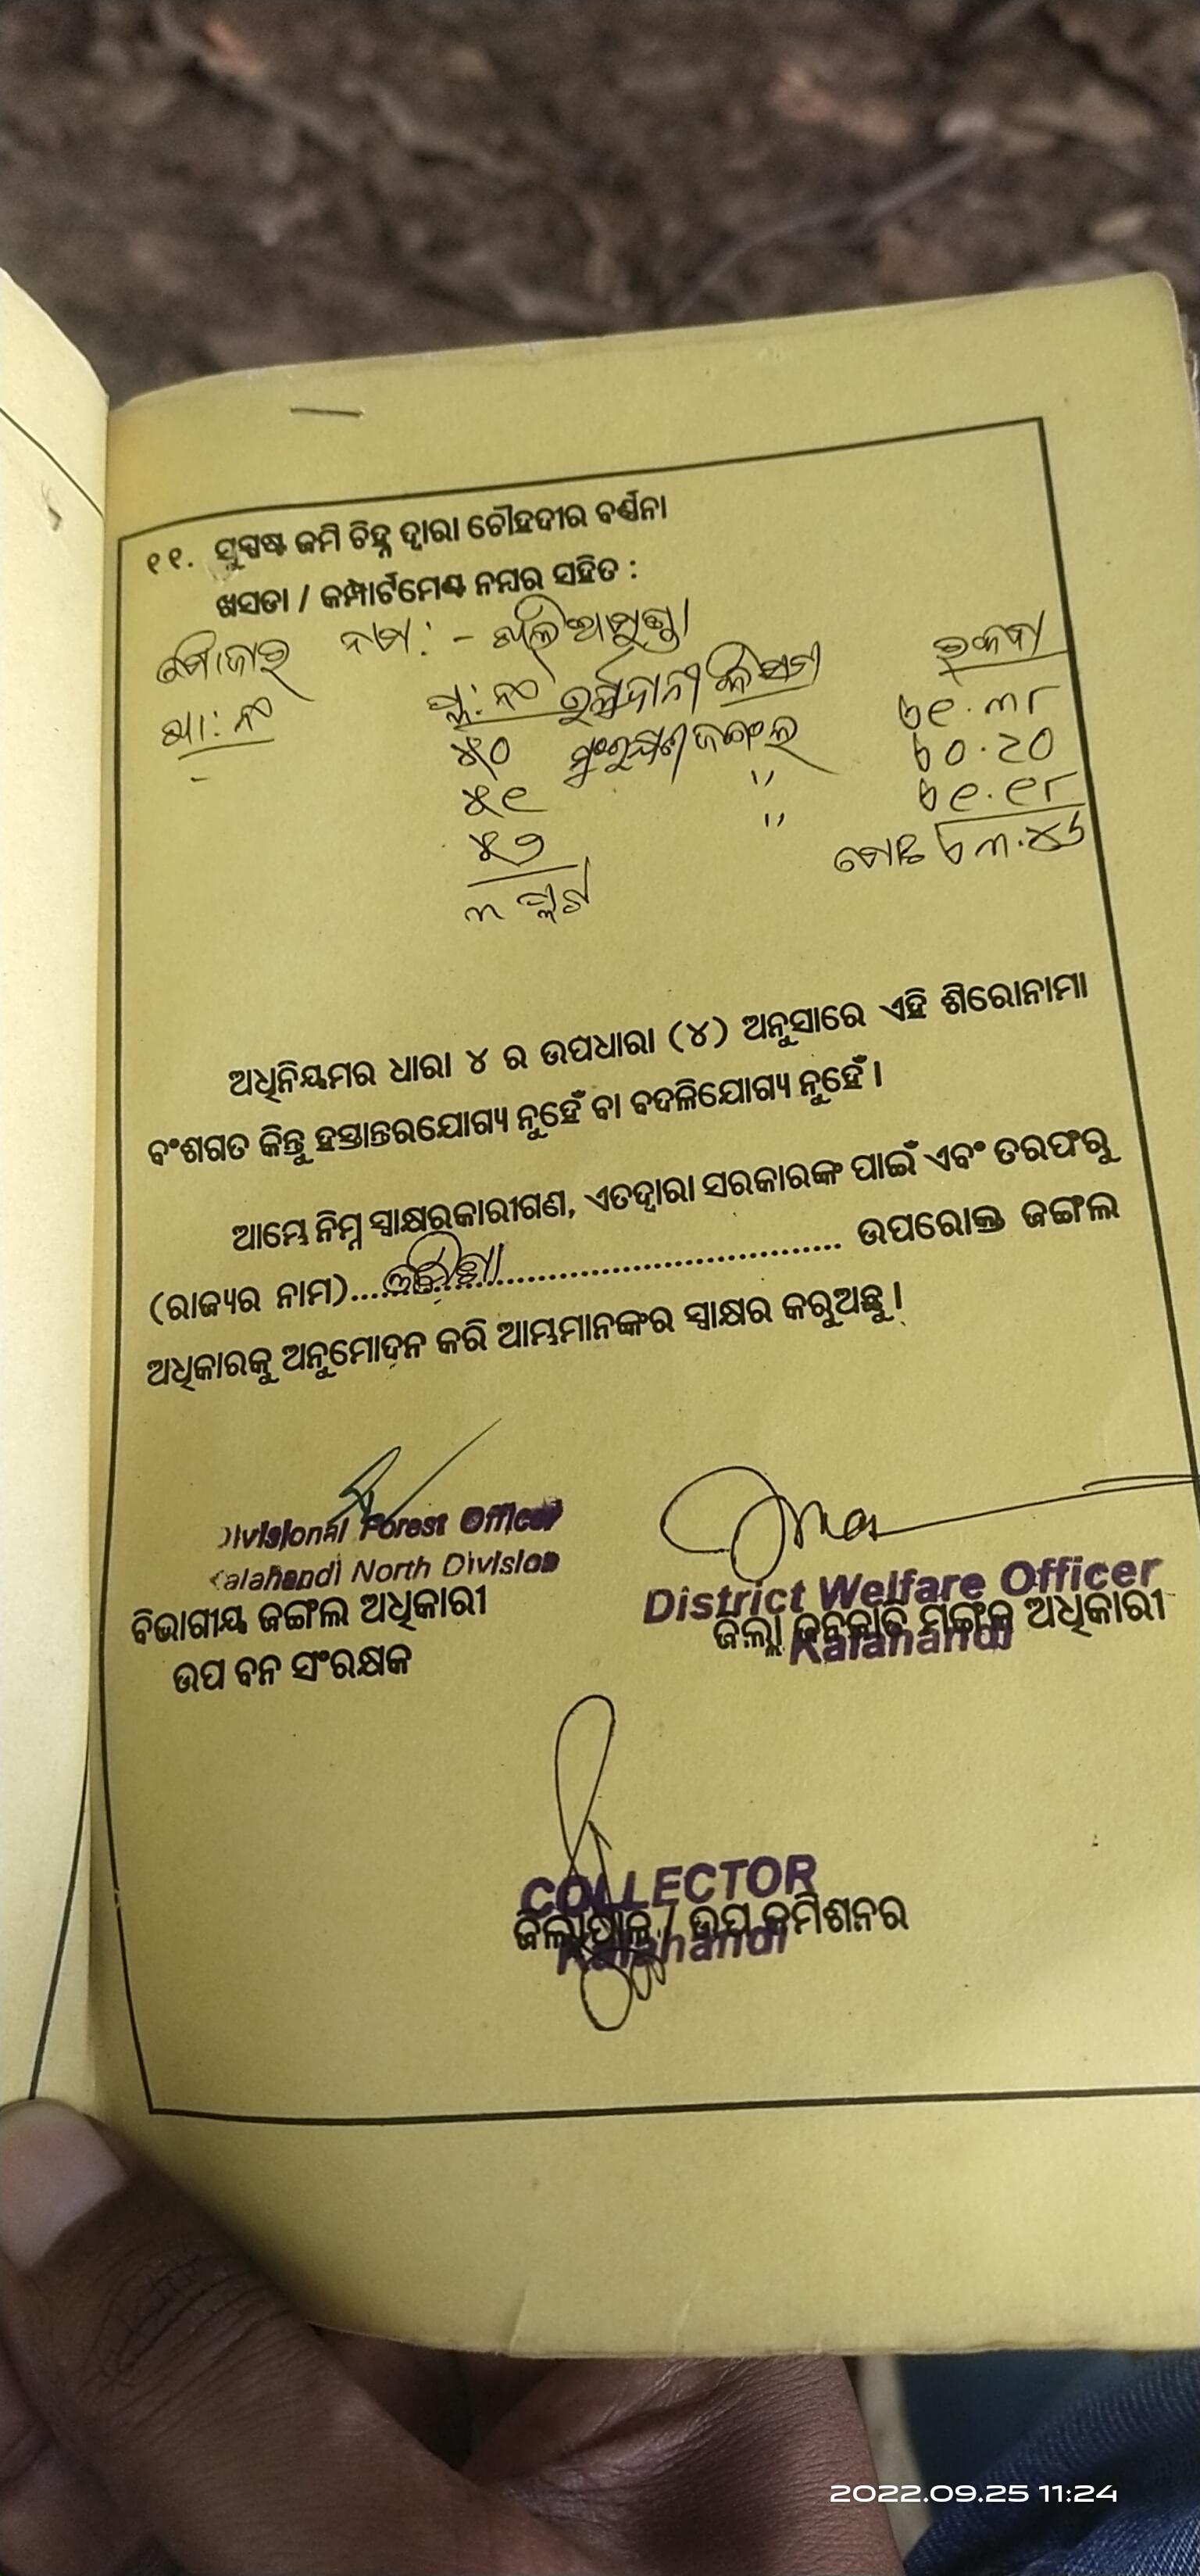 ୧୧. ସୁସ୍ପଷ୍ଟ ଜମି ଚିହ୍ନ ଦ୍ୱାରା ଚୌହଦ୍ଦୀର ବର୍ଣ୍ଣନା
ଖସଡା / କମ୍ପାର୍ଟମେଣ୍ଟ ନମ୍ବର ସହିତ :
ମୌଜାର ନାମ : -
ଖା: ନଂ ପ୍ଲ: ନଂ କିସମ ରକବା
୫୦ ଜଙ୍ଗଲ ୧.୩୮
୫୧ " ୦.୨୦
୫୭ " ୧.୧୮
୩ ପ୍ଲଟ ମୋଟ ୩.୪୬
ଅଧିନିୟମର ଧାରା ୪ ର ଉପଧାରା (୪) ଅନୁସାରେ ଏହି ଶିରୋନାମା
ବଂଶଗତ କିନ୍ତୁ ହସ୍ତାନ୍ତରଯୋଗ୍ୟ ନୁହେଁ ବା ବଦଳିଯୋଗ୍ୟ ନୁହେଁ ।
ଆମ୍ଭେ ନିମ୍ନ ସ୍ୱାକ୍ଷରକାରୀଗଣ, ଏତଦ୍ୱାରା ସରକାରଙ୍କ ପାଇଁ ଏବଂ ତରଫରୁ
(ରାଜ୍ୟର ନାମ)...ଓଡ଼ିଶା........................ ଉପରୋକ୍ତ ଜଙ୍ଗଲ
ଅଧିକାରକୁ ଅନୁମୋଦନ କରି ଆମ୍ଭମାନଙ୍କର ସ୍ୱାକ୍ଷର କରୁଅଛୁ ।
Divisional Forest Officer
Kalahandi North Division
ବିଭାଗୀୟ ଜଙ୍ଗଲ ଅଧିକାରୀ
ଉପ ବନ ସଂରକ୍ଷକ
District Welfare Officer
ଜିଲ୍ଲା ଜନଜାତି ମଙ୍ଗଳ ଅଧିକାରୀ
Kalahandi
COLLECTOR
ଜିଲ୍ଲାପାଳ / ଉପ କମିଶନର
Kalahandi
2022.09.25 11:24